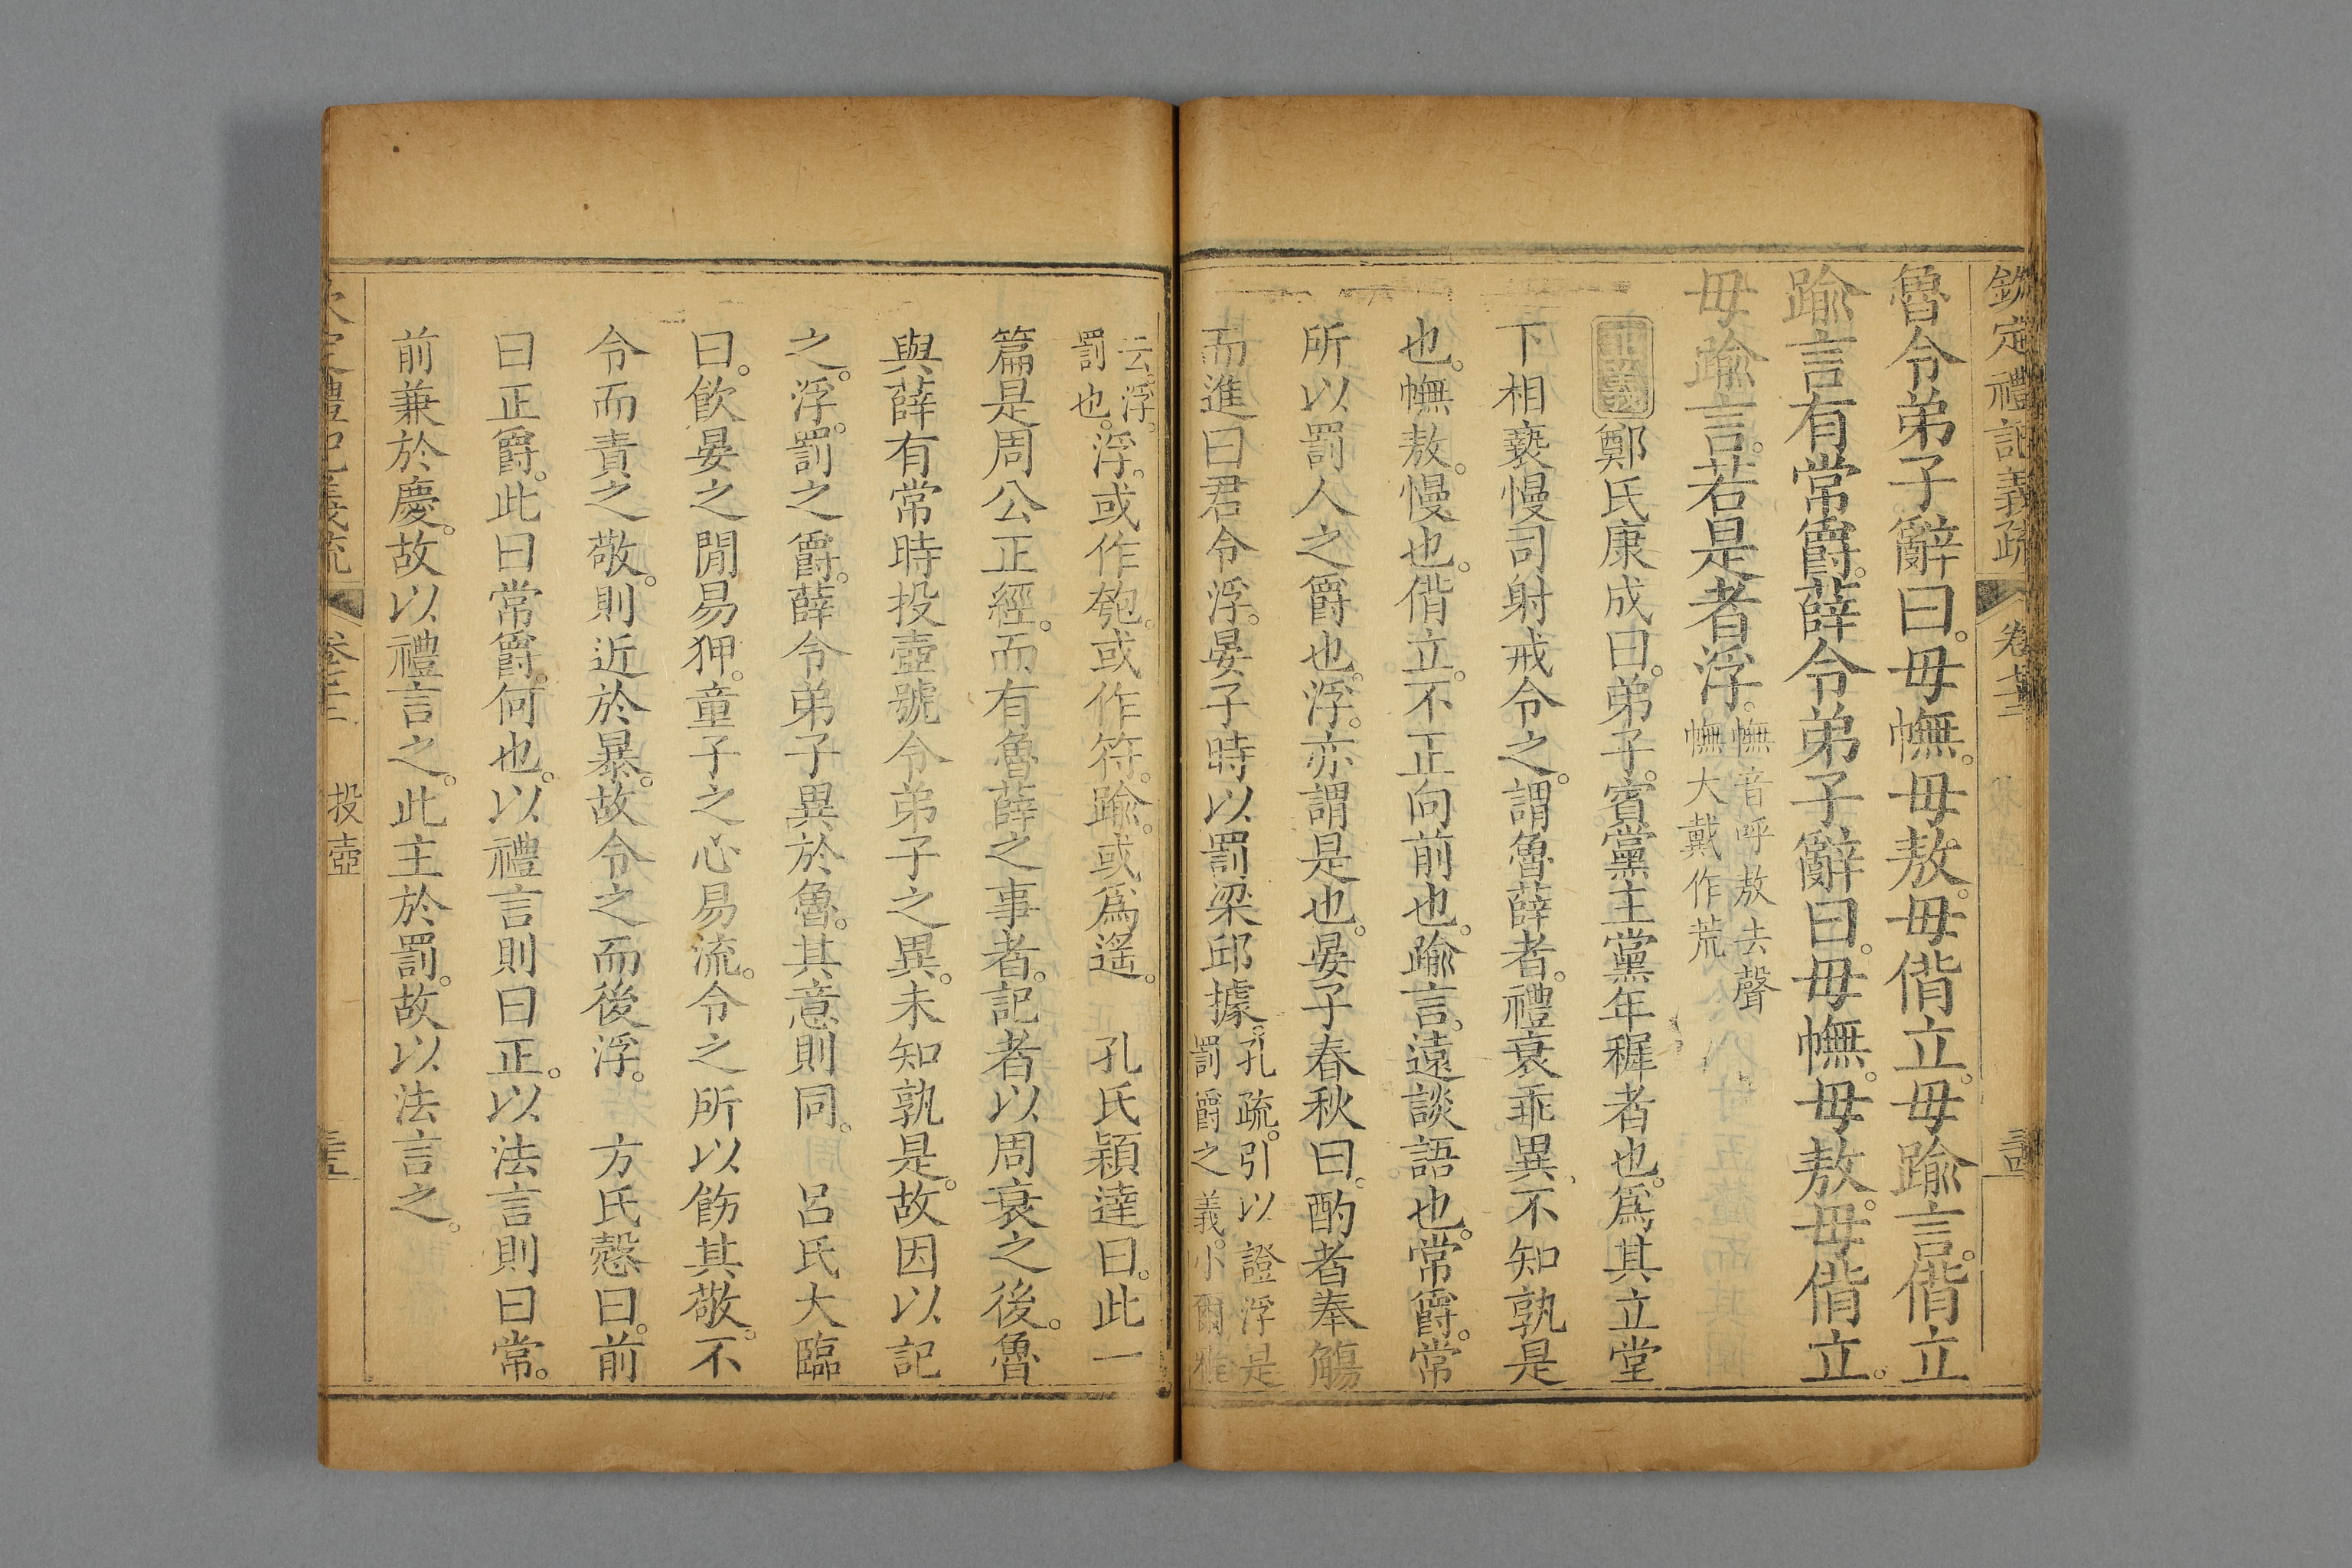 欽定禮記義疏 卷七十三 投壺 三四
魯令弟子辭曰。毋幠。毋敖。毋偝立。毋踰言。偝立
踰言有常爵。薛令弟子辭曰。毋幠。毋敖。毋偝立。
毋踰言。若是者浮。幠音呼敖去聲幠大戴作荒
正義鄭氏康成曰。弟子。賓黨主黨年穉者也。爲其立堂
下相褻慢司射戒令之。謂魯薛者。禮衰乖異、不知孰是
也。幠敖。慢也。偝立。不正向前也。踰言。遠談語也。常爵。常
所以罰人之爵也。浮。亦謂是也。晏子春秋曰。酌者奉觴
而進曰君令浮。晏子時以罰梁邱據。孔疏。引以證浮是罰爵之義。小爾雅
云。浮。罰也。浮。或作匏。或作符。踰。或爲遥。 孔氏穎達曰。此一
篇是周公正經。而有魯薛之事者。記者以周衰之後。魯
與薛有常時投壺號令弟子之異。未知孰是。故因以記
之。浮。罰之爵。薛令弟子異於魯。其意則同。 呂氏大臨
曰。飲晏之閒易狎。童子之心易流。令之所以飭其敬。不
令而責之敬。則近於暴。故令之而後浮。 方氏慤曰。前
曰正爵。此曰常爵。何也。以禮言則曰正。以法言則曰常。
前兼於慶。故以禮言之。此主於罰。故以法言之。
投壺